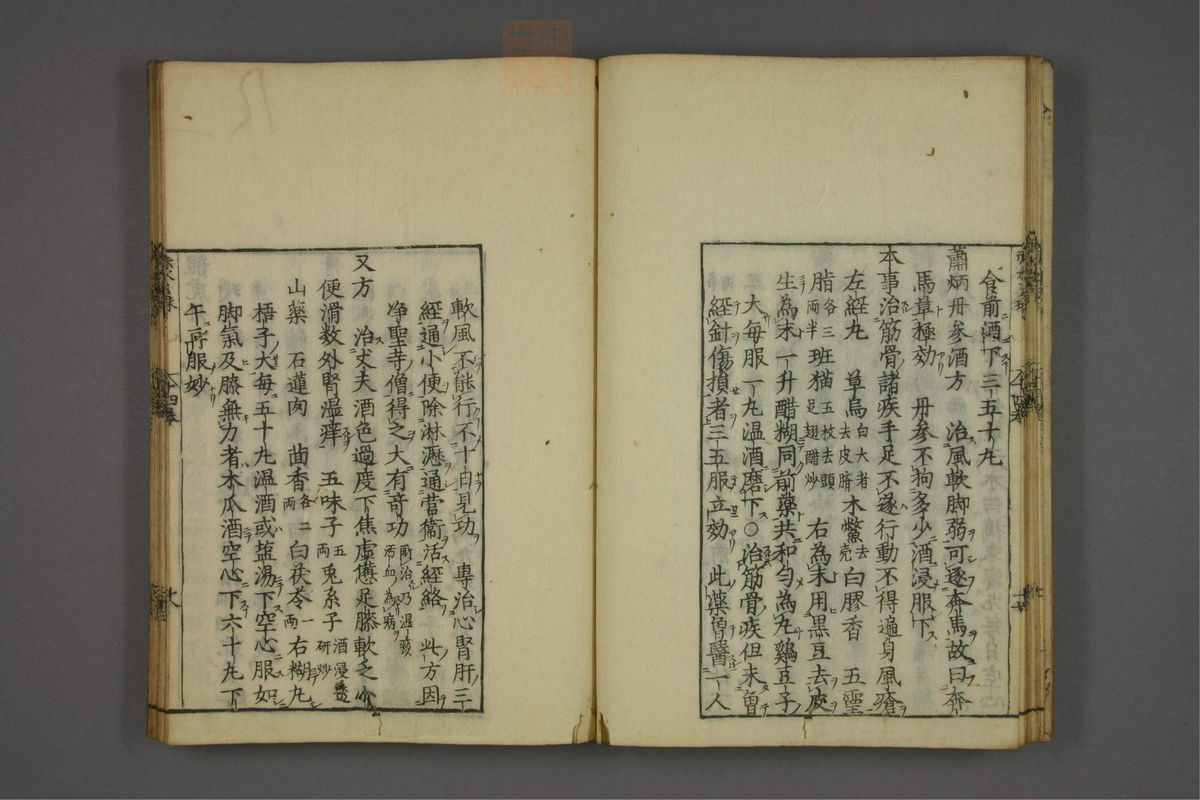 食前酒下三五十丸
蕭炳丹参酒方 治風軟脚弱可逐奔馬故曰奔
馬草極効 丹参不拘多少酒浸服下
本事治筋骨諸疾手足不遂行動不得遍身風瘡
左經丸 草烏白大者去皮臍木鱉去売白膠香 五霊
脂各三両半班猫五枚去頭足翅醋炒 右為末用黒豆去皮
生為末一升醋糊同前薬共和匀為丸鶏豆子
大毎服一丸温酒磨下〇治筋骨疾但未曽
経針傷損者三五服立効 此薬曽醫一人
軟風不能行不十日見功 専治心腎肝三
経通小便除淋瀝通営衛活経絡 此方因
浄聖寺僧得之大有奇功 所治乃温痰汚血為病
又方 治丈夫酒色過度下焦虚憊足膝軟乏小
便滑数外腎湿痒 五味子五両兎糸子酒浸研炒
山薬 石蓮肉 茴香各二両白茯苓一両右糊丸
梧子大毎五十丸温酒或塩湯下空心服如
脚氣及膝無力者木瓜酒空心下六十丸下
午再服妙